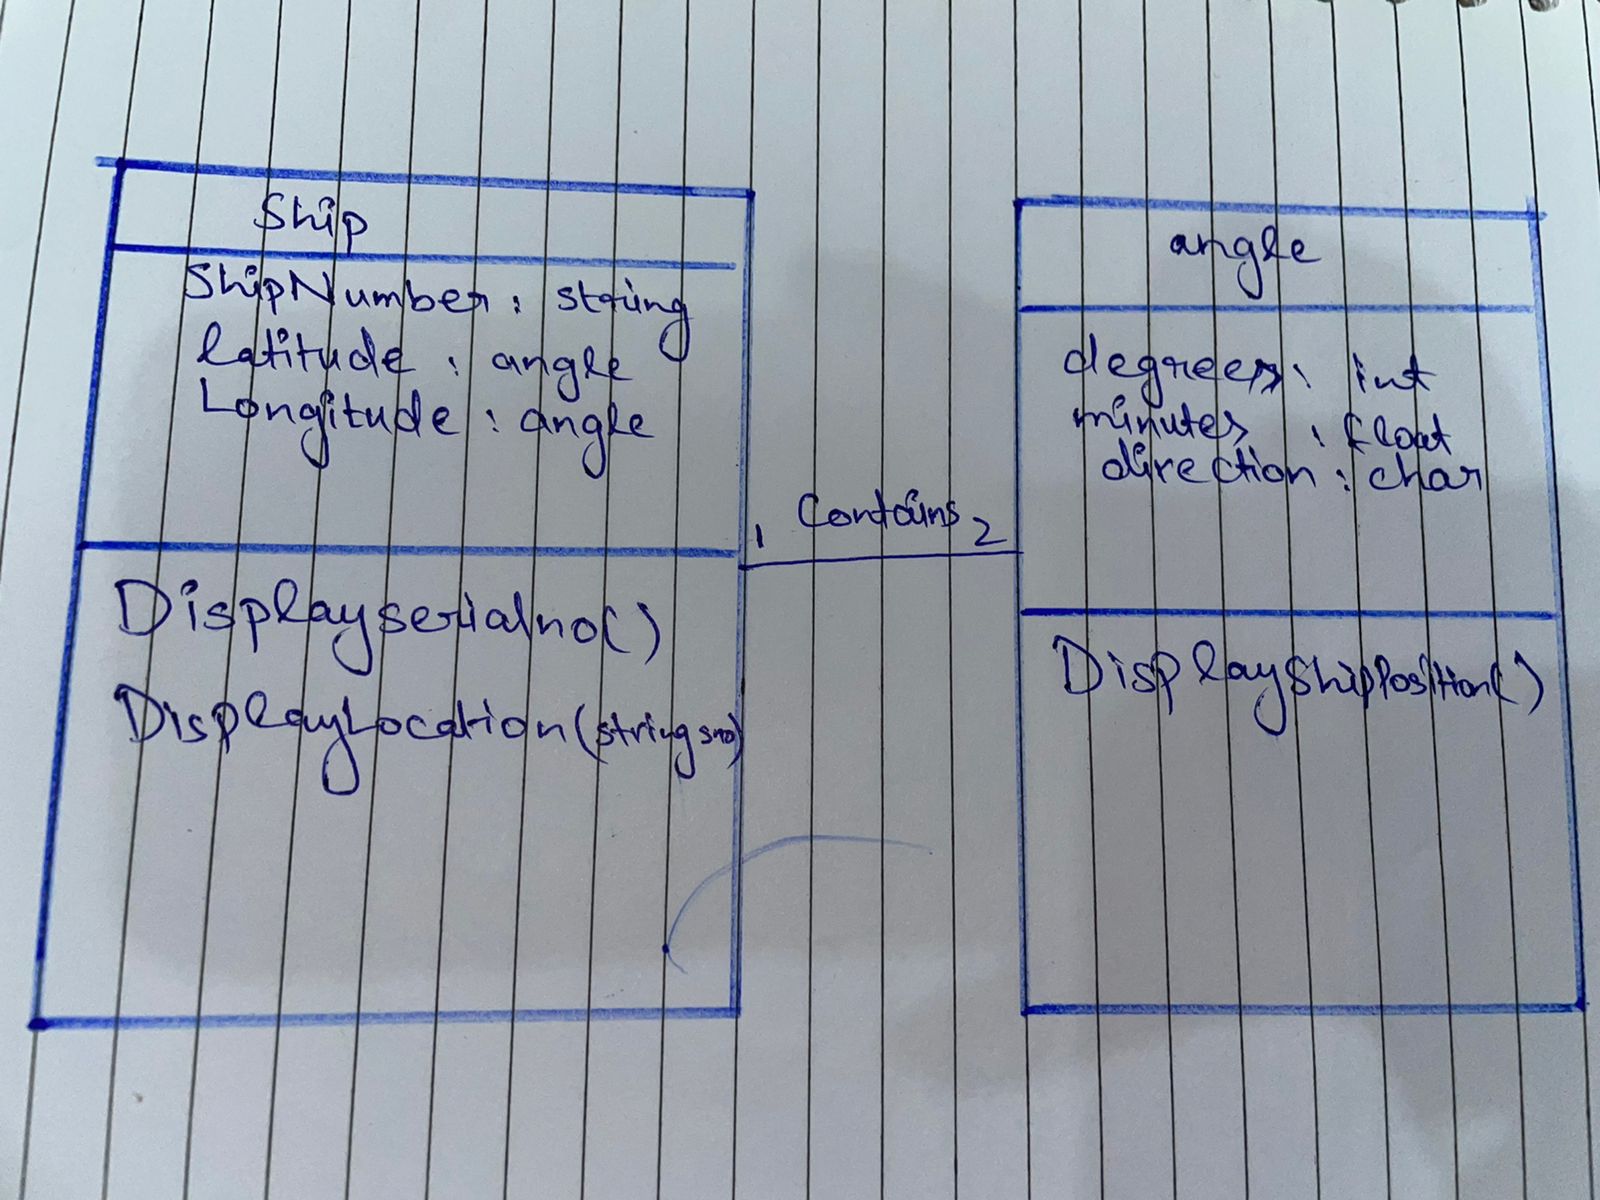 Ship
ShipNumber : string
latitude : angle
Longitude : angle
Displayserialno()
DisplayLocation(string sno)
1 Contains 2
angle
degrees : int
minutes : float
direction : char
DisplayShipPosition()